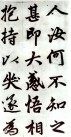 人何不知之
甚即大感悟相
抱持以哭遂為